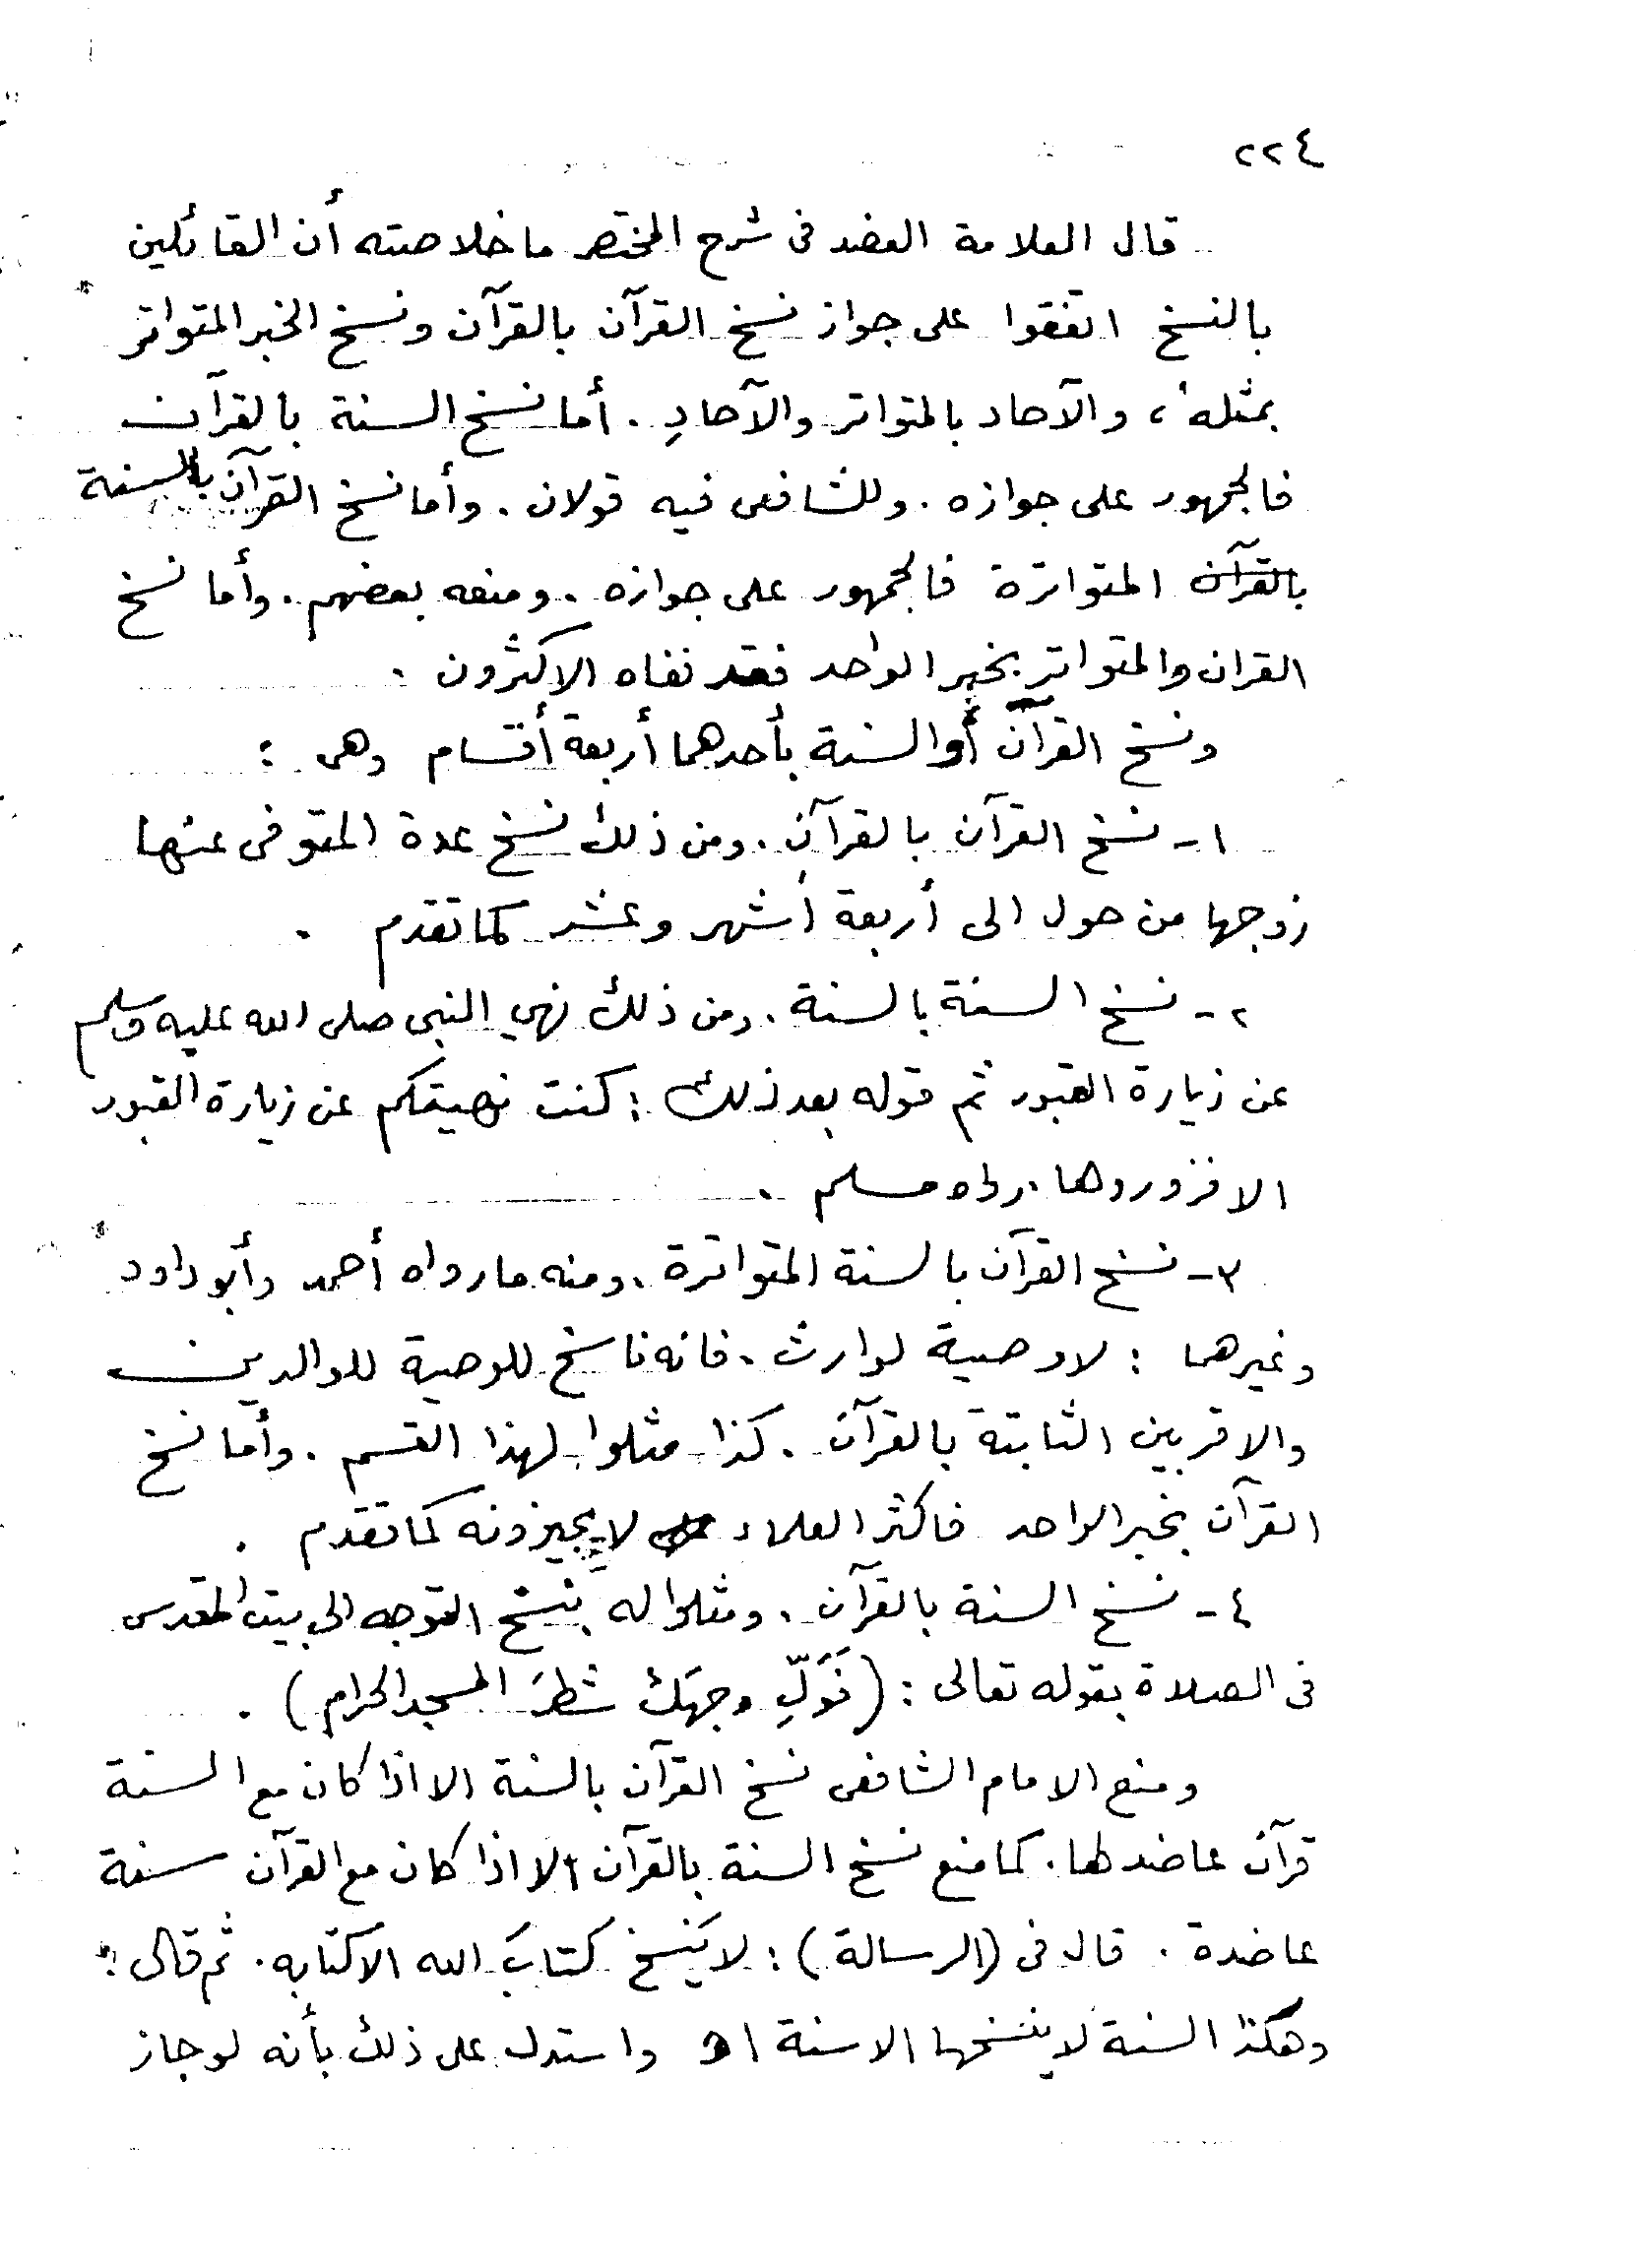 ٢٢٤
قال العلامة العضد فى شرح المختصر ما خلاصته أن القائلين
بالنسخ اتفقوا على جواز نسخ القرآن بالقرآن ونسخ الخبر المتواتر
بمثله ، والآحاد بالمتواتر والآحادِ . أما نسخ السنة بالقرآن
فالجمهور على جوازه . وللشافعى فيه قولان . وأما نسخ القرآن بالسنة
بالقرآن المتواترة فالجمهور على جوازه . ومنعه بعضهم . وأما نسخ
القران والمتواتر بخبر الواحد فقد نفاه الاكثرون .
ونسخ القرآن أو السنة بأحدهما أربعة أقسام وهى :
١ - نسخ القرآن بالقرآن . ومن ذلك نسخ عدة المتوفى عنها
زوجها من حول الى أربعة أشهر وعشر كما تقدم .
٢ - نسخ السنة بالسنة . ومن ذلك نهي النبى صلى الله عليه وسلم
عن زيارة القبور ثم قوله بعد ذلك : كنت نهيتكم عن زيارة القبور
الا فزوروها . رواه مسلم .
٣ - نسخ القرآن بالسنة المتواترة . ومنه ما رواه أحمد وأبو داود
وغيرهما : لا وصية لوارث . فانه ناسخ للوصية للوالدين
والاقربين الثابتة بالقرآن . كذا مثلوا لهذا القسم . وأما نسخ
القرآن بخبر الواحد فاكثر العلماء لا يجيزونه كما تقدم .
٤ - نسخ السنة بالقرآن . ومثلوا له بنسخ التوجه الى بيت المقدس
فى الصلاة بقوله تعالى : ( فَوَلِّ وجهَك شطرَ المسجد الحرام ) .
ومنع الامام الشافعى نسخ القرآن بالسنة الا اذا كان مع السنة
قرآن عاضد لها . كما منع نسخ السنة بالقرآن الا اذا كان مع القرآن سنة
عاضدة . قال فى ( الرسالة ) : لا يَنسخ كتابَ الله الا كتابه . ثم قال :
وهكذا السنة لا ينسخها الا سنة اه واستدل على ذلك بأنه لو جاز